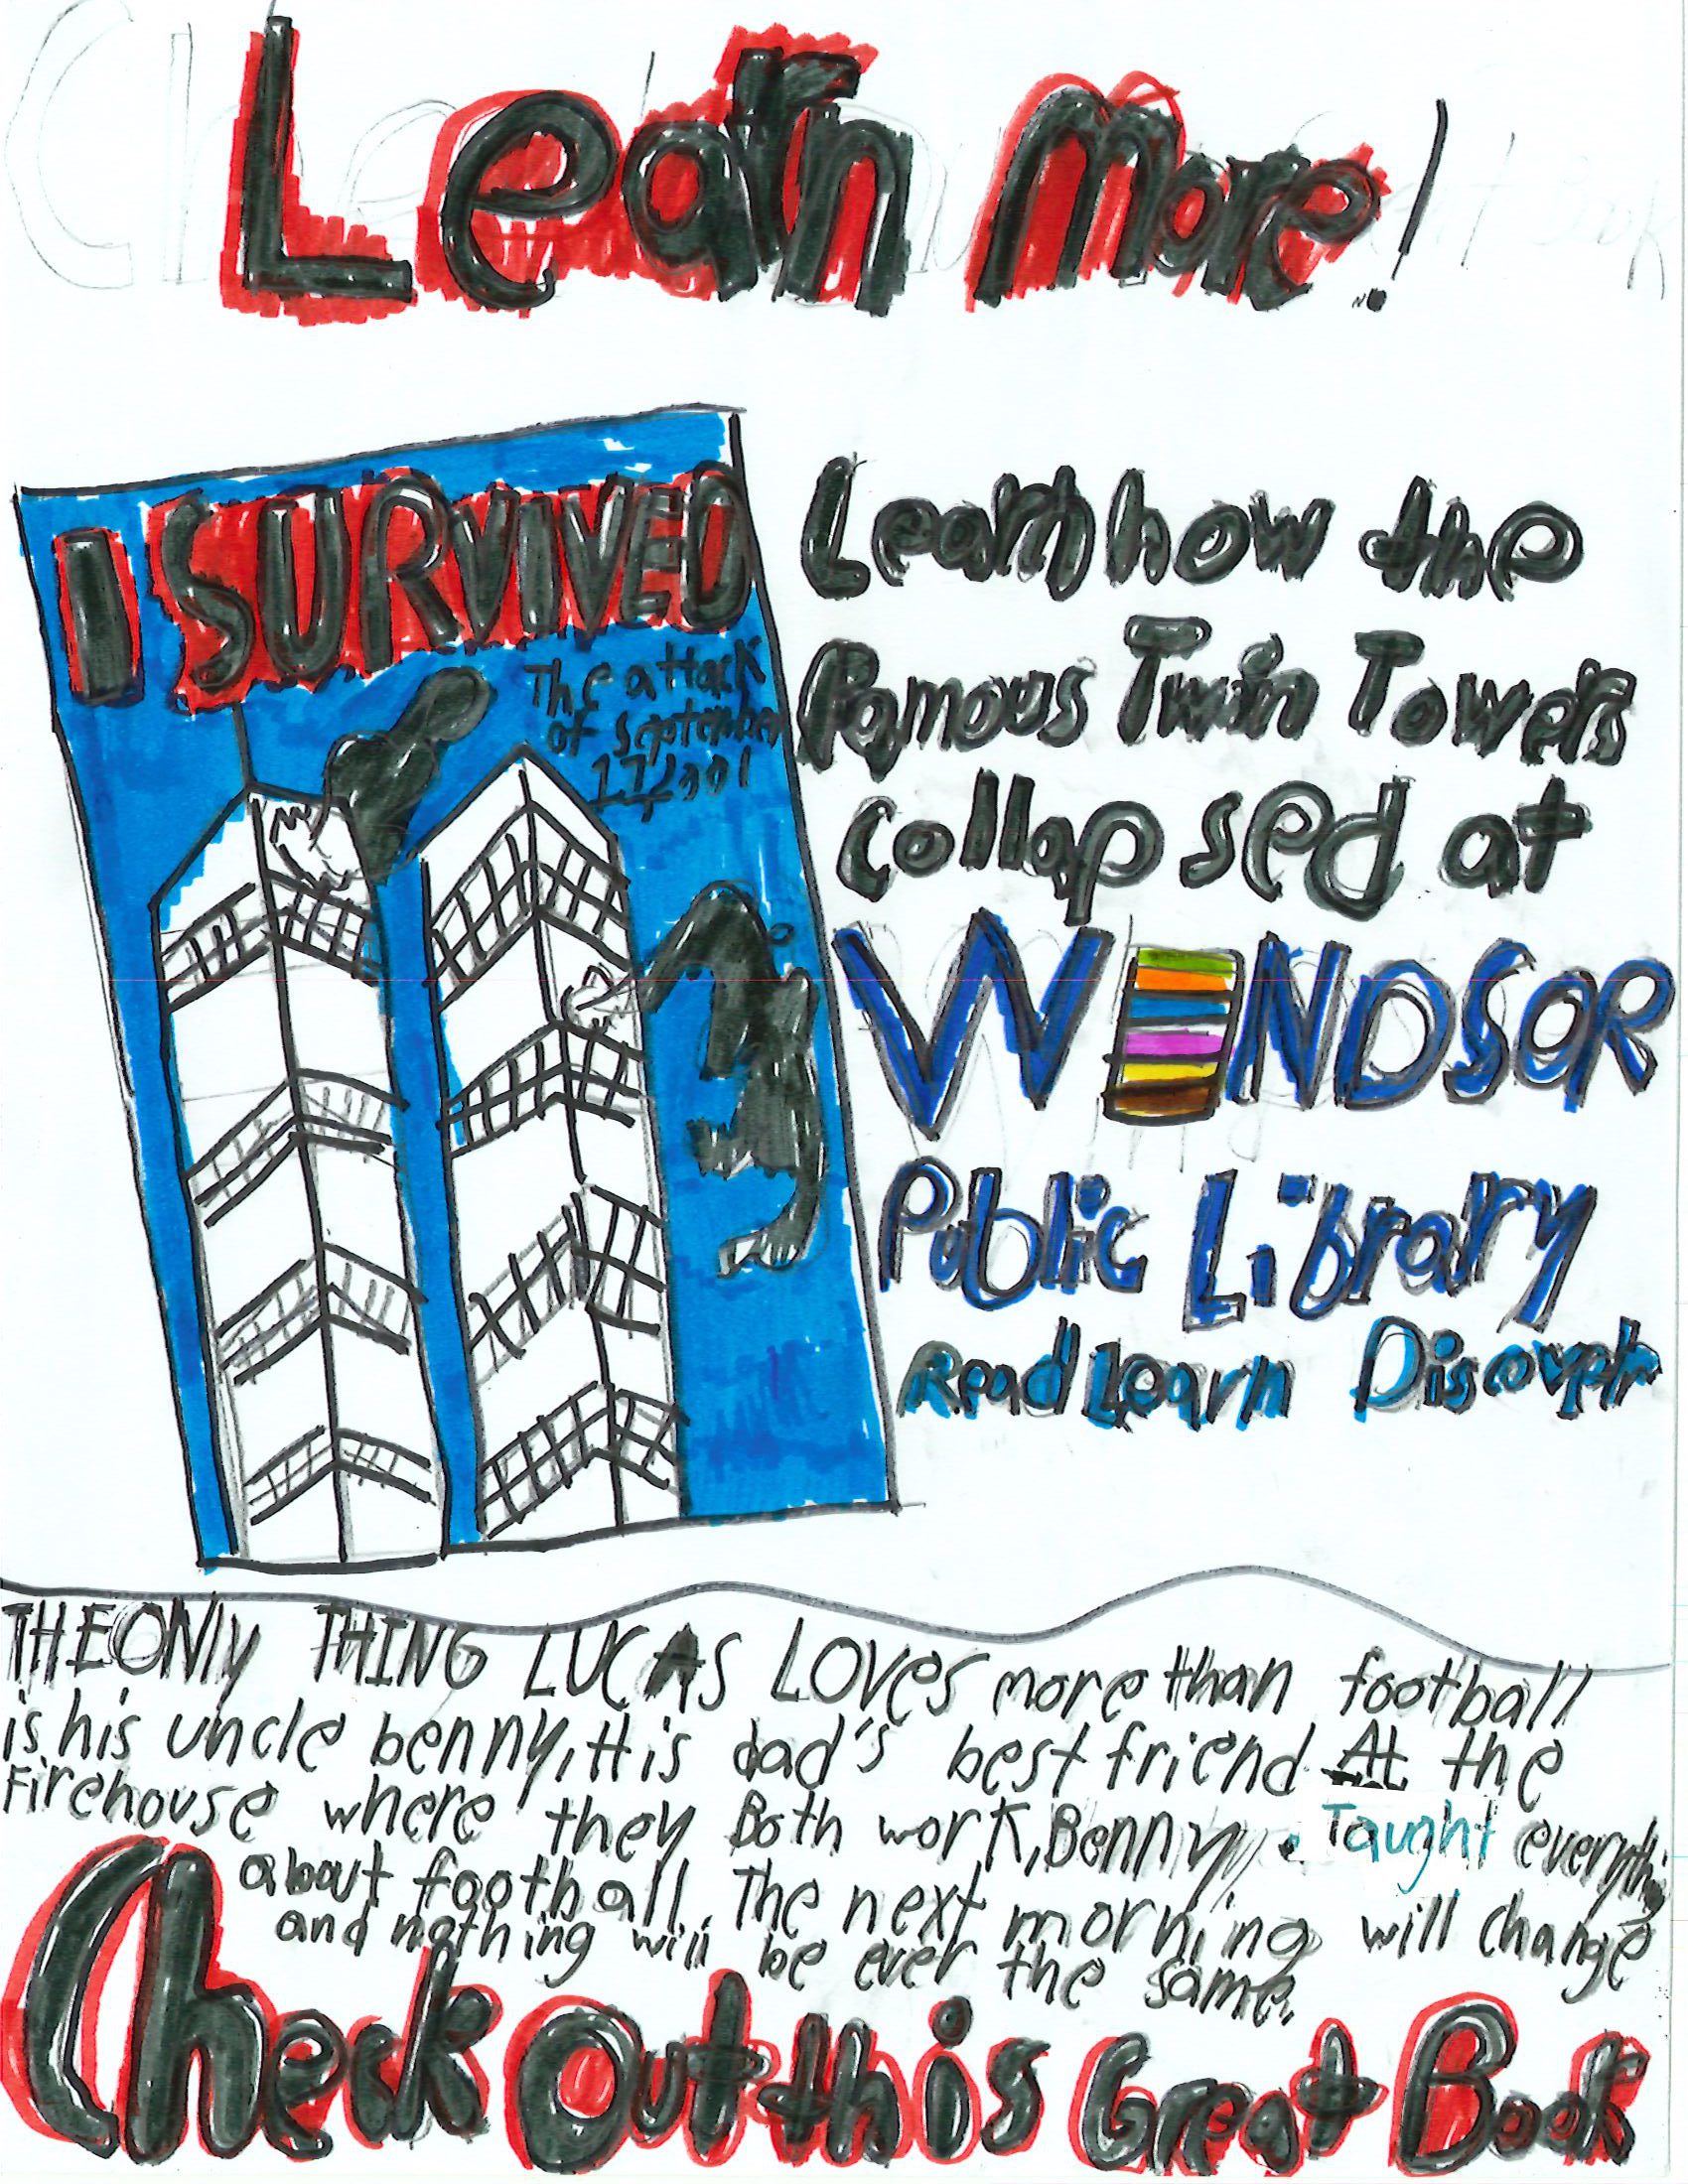 Learn More!
I SURVIVED
The attack
of September
11 2001
Learn how the
Famous Twin Towers
collapsed at
WINDSOR
Public Library
Read Learn Discover
THE ONly THING LUCAS LOVes more than football
is his uncle benny, His dad's best friend At the
Firehouse where they Both work, Benny Taught everything
about football. The next morning will change
and nothing will be ever the same.
Check Out this Great Book